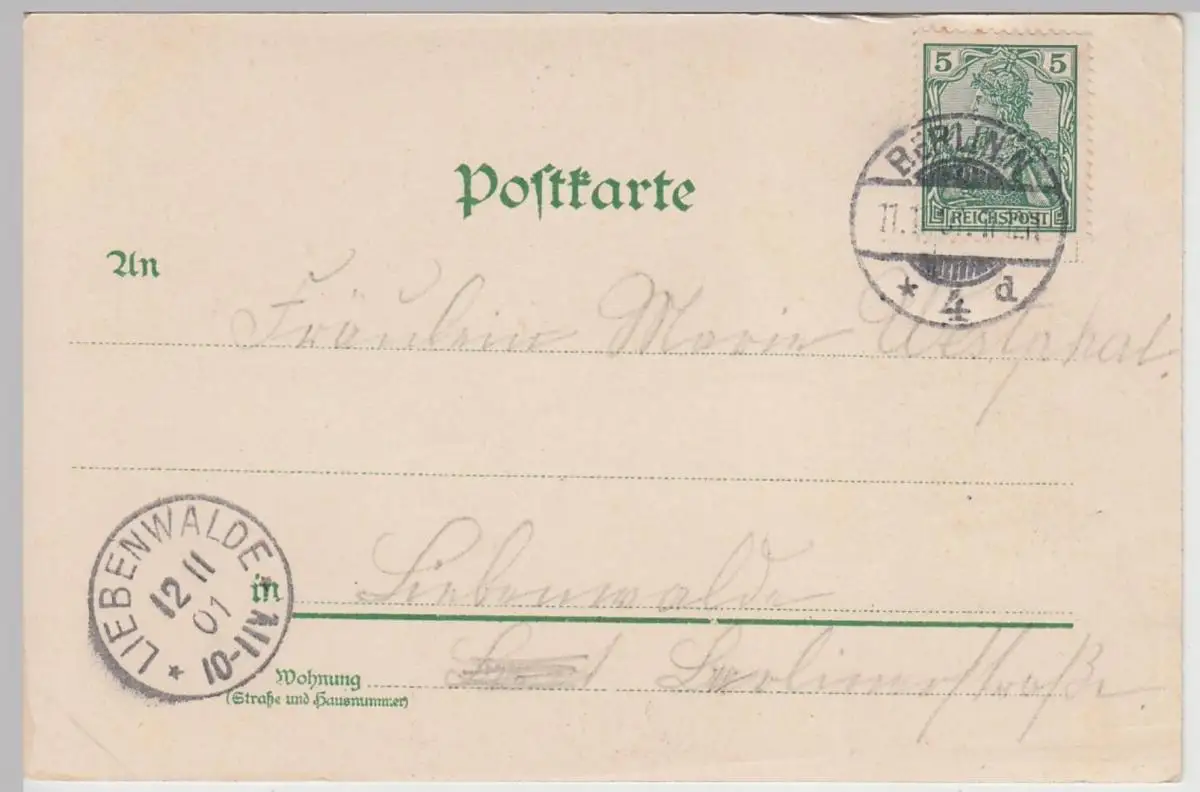 5 5
REICHSPOST
BERLIN N
* 4 d
Postkarte
An
Fräulein Marie Westphal.
LIEBENWALDE
12 11
01
10-11V
*
in Liebenwalde
Wohnung
(Straße und Hausnummer)
Berlinerstraße